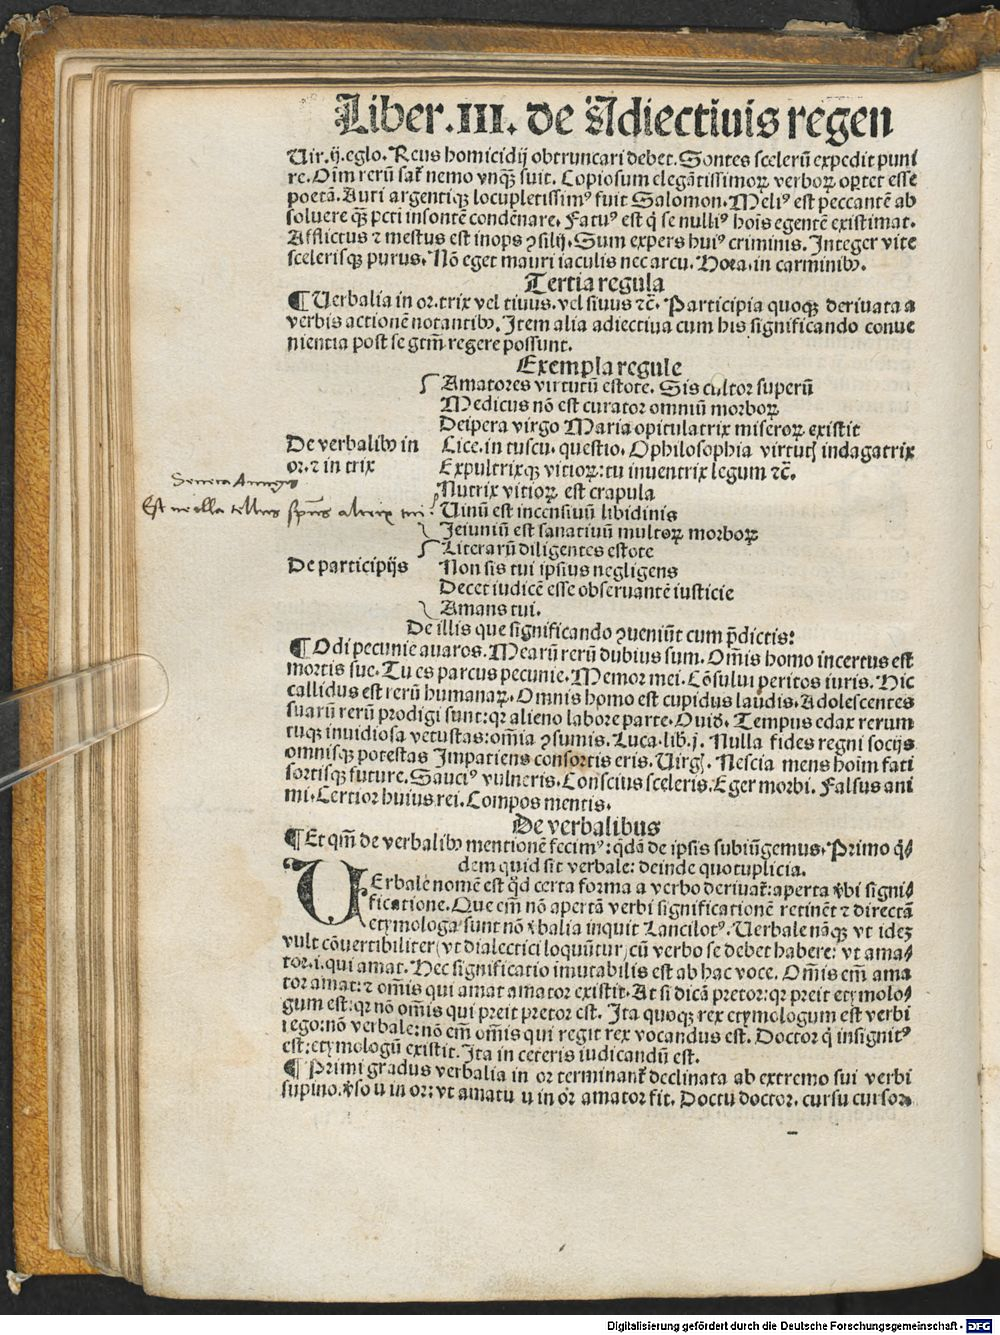 Liber .III. de Adiectiuis regen
Uir. ij. eglo. Reus homicidij obtruncari debet. Sontes scelerū expedit puni
re. Oīm rerū sat̄ nemo vnqꝫ fuit. Copiosum elegātissimoꝝ verboꝝ oꝑtet esse
poetā. Auri argentiqꝫ locupletissimꝰ fuit Salomon. Meliꝰ est peccantē ab
soluere qꝫ̄ pctī insontē condēnare. Fatuꝰ est q̇ se nulliꝰ hoīs egentē existimat.
Afflictus ⁊ mestus est inops ꝯsilij. Sum expers huiꝰ criminis. Integer vite
scelerisqꝫ purus. Nō eget mauri iaculis nec arcu. Hora. in carminibꝰ.
Tertia regula
¶ Uerbalia in or. trix vel tiuus. vel siuus ⁊c̄. Participia quoqꝫ deriuata a
verbis actionē notantibꝰ. Item alia adiectiua cum his significando conue
nientia post se gtm̄ regere possunt.
Exempla regule
Amatores virtutū estote. Sis cultor superū
Medicus nō est curator omniū morboꝝ
Deipera virgo Maria opitulatrix miseroꝝ existit
De verbalibꝰ in
Cice. in tuscu. questio. O philosophia virtutꝭ indagatrix
or. ⁊ in trix
Expultrixqꝫ vitioꝝ: tu inuentrix legum ⁊c̄.
Seneca
Nutrix vitioꝝ est crapula
Est tellus altrix
Uinū est incensiuū libidinis
Ieiuniū est sanatiuū multoꝝ morboꝝ
Literarū diligentes estote
De participijs
Non sis tui ipsius negligens
Decet iudicē esse obseruantē iusticie
Amans tui.
De illis que significando ꝯueniūt cum p̄dictis:
¶ Odi pecunie auaros. Mearū rerū dubius sum. Om̄is homo incertus est
mortis sue. Tu es parcus pecunie. Memor mei. Cōsului peritos iuris. Hic
callidus est rerū humanaꝝ. Omnis homo est cupidus laudis. Adolescentes
suarū rerū prodigi sunt: qꝛ alieno labore parte. Ouid. Tempus edax rerum
tuqꝫ inuidiosa vetustas: om̄ia ꝯsumis. Luca. lib. j. Nulla fides regni socijs
omnisqꝫ potestas Impatiens consortis erit. Uirgꝭ. Nescia mens hoīm fati
sortisqꝫ future. Sauciꝰ vulneris. Conscius sceleris. Eger morbi. Falsus ani
mi. Certior huius rei. Compos mentis.
De verbalibus
¶ Et qm̄ de verbalibꝰ mentionē fecimꝰ: q̄dā de ipsis subiūgemus. Primo q̇⸗
dem quid sit verbale: deinde quotuplicia.
UErbale nomē est qd̄ certa forma a verbo deriuat̄: aperta v̄bi signi⸗
ficatione. Que em̄ nō apertā verbi significationē retinēt ⁊ directā
etymologa sunt nō v̄balia inquit Lancilotꝰ. Uerbale nāqꝫ vt idez
vult cōuertibiliter (vt dialectici loquūtur) cū verbo se debet habere: vt ama⸗
tor. i. qui amat. Nec significatio imutabilis est ab hac voce. Om̄is em̄ ama
tor amat: ⁊ om̄is qui amat amator existit. At si dicā pretor: qꝛ preit etymolo⸗
gum est: qꝛ nō om̄is qui preit pretor est. Ita quoqꝫ rex etymologum est verbi
rego: nō verbale: nō em̄ om̄is qui regit rex vocandus est. Doctor q̇ insignitꝰ
est: etymologū existit. Ita in ceteris iudicandū est.
¶ Primi gradus verbalia in or terminant̄ declinata ab extremo sui verbi
supino. v̄so u in or: vt amatu u in or amator fit. Doctu doctor. cursu cursor.
Digitalisierung gefördert durch die Deutsche Forschungsgemeinschaft - DFG